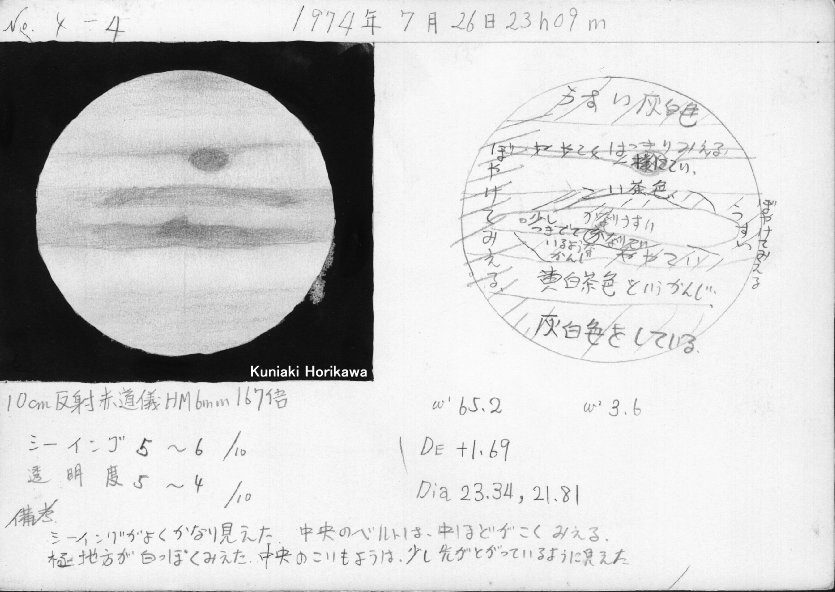 No. 4-4
1974年 7月 26日 23h09m
うすい灰白色
ぼやけてみえる
やや はっきりみえる
こい茶色
少し
つきでて
いるような
かんじ
かなりうすい
ややこい
うすい
ぼやけてみえる
黄白茶色というかんじ、
灰白色をしている
Kuniaki Horikawa
10cm反射赤道儀HM6mm 167倍
シーイング 5 ～ 6 /10
透明度 5 ～ 4 /10
備考
シーイングがよくかなり見えた. 中央のベルトは、中ほどがこくみえる.
極地方が白っぽくみえた. 中央のこいもようは、少し先がとがっているように見えた
ω¹ 65.2
ω² 3.6
DE +1.69
Dia 23.34, 21.81